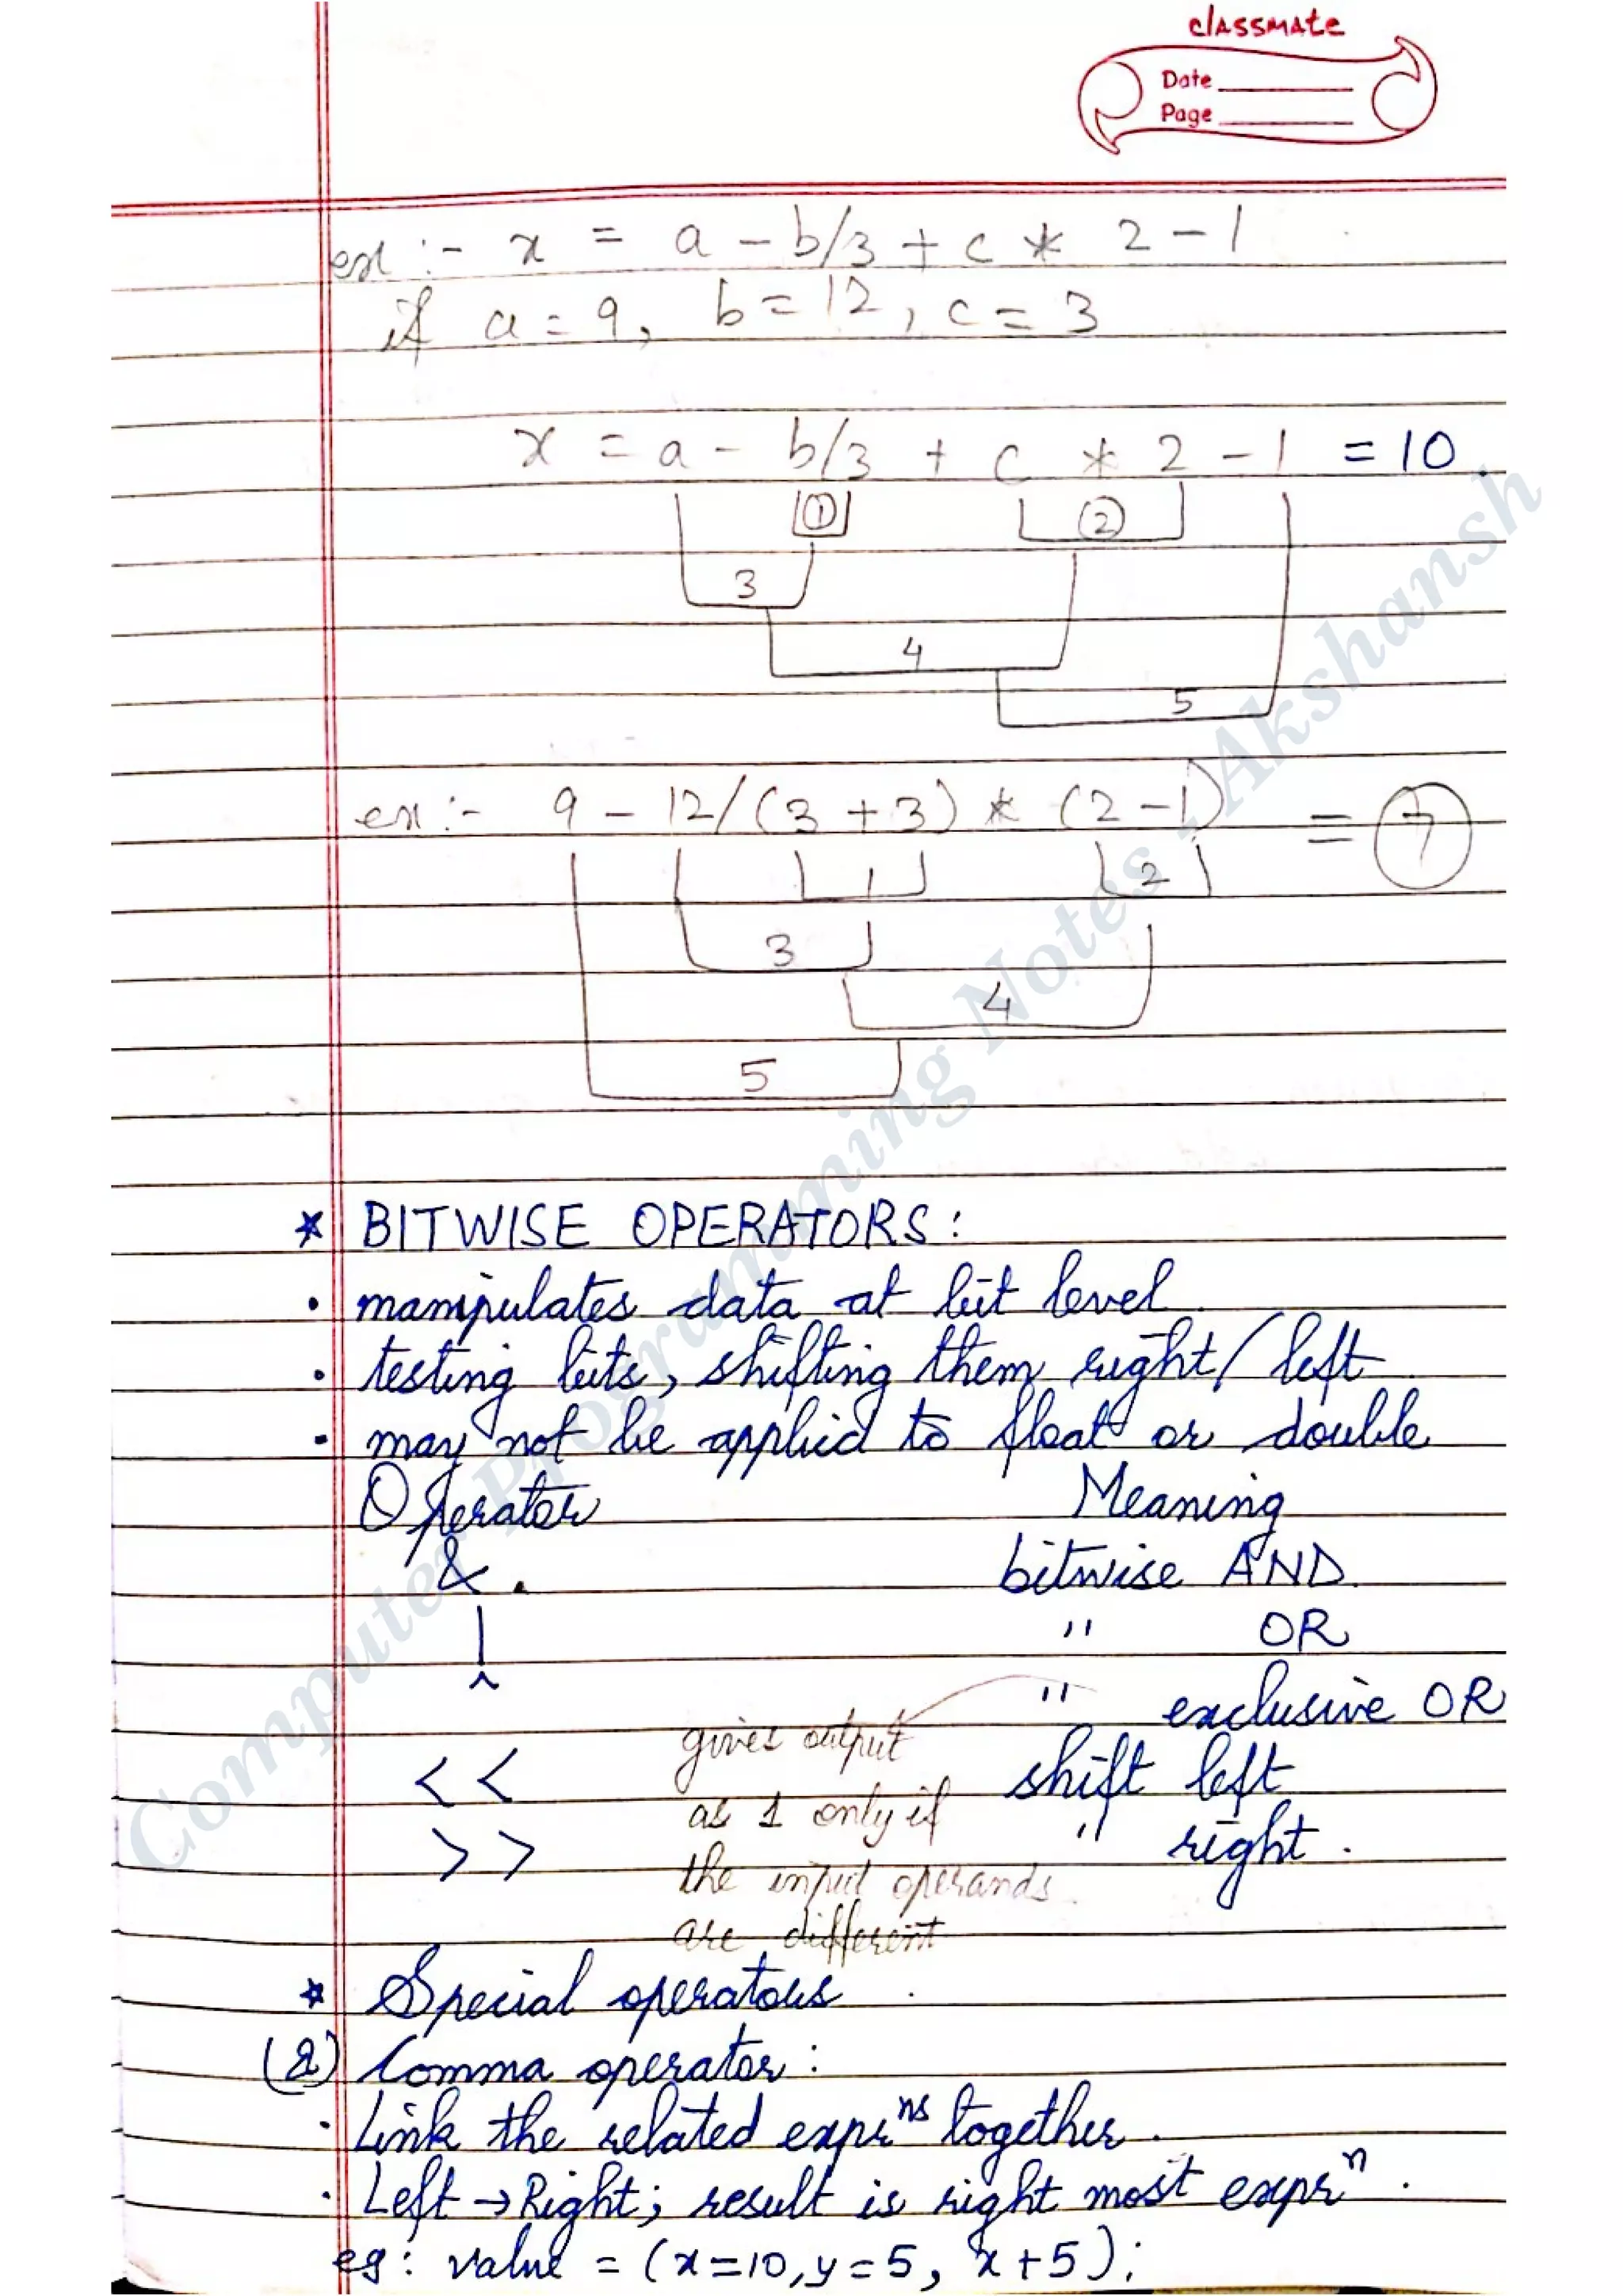 classmate
Date
Page
ex :- x = a - b/3 + c * 2 - 1
if a = 9, b = 12, c = 3
x = a - b/3 + c * 2 - 1 = 10.
1 2
3
4
5
ex :- 9 - 12/(3 + 3) * (2 - 1) = 7
1 2
3
4
5
* BITWISE OPERATORS :
• manipulates data at bit level.
• testing bits, shifting them right/left
• may not be applied to float or double
Operator Meaning
& . bitwise AND.
| " OR
^ " exclusive OR
gives output
<< shift left
as 1 only if
>> " right.
the input operands
are different
* Special operators
(2) Comma operator :
• Link the related exprⁿˢ together.
• Left → Right; result is right most exprⁿ.
eg : value = (x=10, y=5, x+5);
Computer Programming Notes - Akshansh